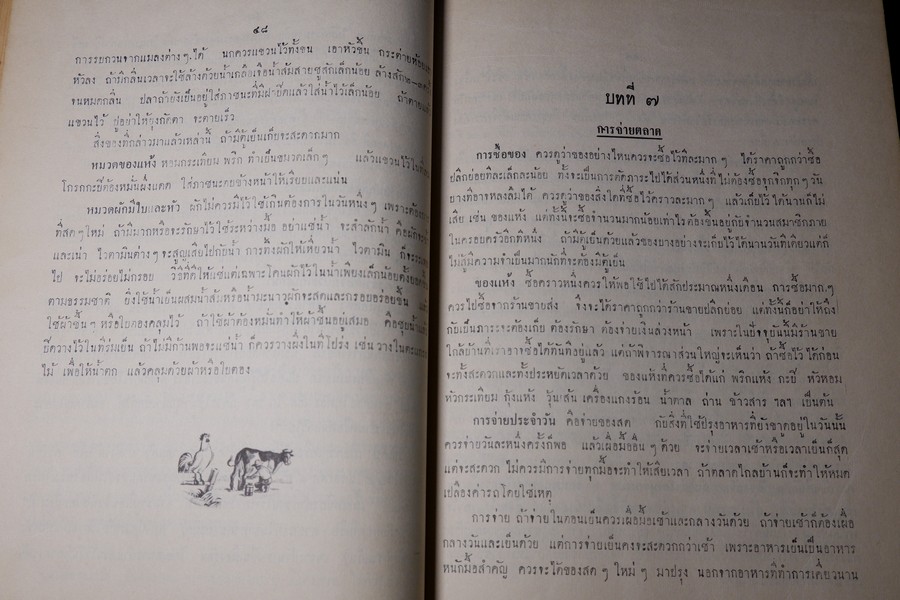 ๔๘
การรบกวนจากแมลงต่างๆ.ได้ นกควรแขวนไว้ทั้งขน เอาหัวขึ้น กระต่ายห้อย
หัวลง ถ้ามีกลิ่นเวลาจะใช้ล้างด้วยน้ำเกลือเจือน้ำส้มสายชูสักเล็กน้อย ล้างสัก ๒–๓
จนหมดกลิ่น ปลาถ้ายังเป็นอยู่ใส่ภาชนะที่มีฝาปิดแล้วใส่น้ำไว้เล็กน้อย ถ้าตายแล้ว
แขวนไว้ ปูอย่าให้ยุงกัดตา จะตายเร็ว
สิ่งของที่กล่าวมาแล้วเหล่านี้ ถ้ามีตู้เย็นเก็บจะสะดวกมาก
หมวดของแห้ง หอมกระเทียม พริก ทำเป็นขนวดเล็กๆ แล้วแขวนไว้ในที่
โกรกกะปิต้องหมั่นผึ่งแดด ใส่ภาชนะกดข้างหน้าให้เรียบและแน่น
หมวดผักมีใบและหัว ผักไม่ควรมีไว้ใช้เกินต้องการในวันหนึ่งๆ เพราะต้อง
ที่สดๆใหม่ ถ้ามีมากหรือจะรักษาไว้ใช้ระหว่างมื้อ อย่าแช่น้ำ จะสำลักน้ำ คือผักจะ
และเน่า ไวตามินต่างๆ จะสูญเสียไปกับน้ำ การทิ้งผักให้เหี่ยวน้ำ ไวตามิน ก็จะระเหย
ไป จะไม่อร่อยไม่กรอบ วิธีที่ดีให้แช่แต่เฉพาะโคนผักไว้ในน้ำเพียงเล็กน้อยตั้งยอด
ตามธรรมชาติ ยิ่งใช้น้ำเย็นผสมน้ำส้มหรือน้ำมะนาวผักจะสดและกรอบอร่อยขึ้น แล้ว
ใช้ผ้าชื้นๆ หรือใบตองคลุมไว้ ถ้าใช้ผ้าต้องหมั่นทำให้ผ้าชื้นอยู่เสมอ คือชุบน้ำแล้ว
บิดวางไว้ในที่ร่มเย็น ถ้าไม่มีก้านพอจะแช่น้ำ ก็ควรวางผึ่งในที่โปร่ง เช่น วางในตะแกรง
ไม้ เพื่อให้น้ำตก แล้วคลุมด้วยผ้าหรือใบตอง
บทที่ ๗
การจ่ายตลาด
การซื้อของ ควรดูว่าของอย่างไหนควรจะซื้อไว้ทีละมากๆ ได้ราคาถูกกว่าซื้อ
ปลีกย่อยทีละเล็กละน้อย ทั้งจะเป็นการตัดภาระไปได้ส่วนหนึ่งที่ไม่ต้องซื้อจุกจิกทุกๆวัน
บางทีอาจหลงลืมได้ ควรดูว่าของสิ่งใดที่ซื้อไว้คราวละมากๆ แล้วเก็บไว้ได้นานก็ไม่
เสีย เช่น ของแห้ง แต่ทั้งนี้จะซื้อจำนวนมากน้อยเท่าไรต้องขึ้นอยู่กับจำนวนสมาชิกภาย
ในครอบครัวอีกทีหนึ่ง ถ้ามีตู้เย็นด้วยแล้วของบางอย่างจะเก็บไว้ได้นานวันทีเดียวแต่ก็
ไม่สู้มีความจำเป็นมากนักที่จะต้องมีตู้เย็น
ของแห้ง ซื้อคราวหนึ่งควรให้พอใช้ไปได้สักประมาณหนึ่งเดือน การซื้อมากๆ
ควรไปซื้อจากร้านขายส่ง จึงจะได้ราคาถูกกว่าร้านขายปลีกย่อย แต่ทั้งนี้ก็อย่าให้ถึง
กับเป็นภาระจะต้องเก็บ ต้องรักษา ต้องจ่ายเงินล่วงหน้า เพราะในปัจจุบันนี้มีร้านขาย
ใกล้บ้านที่เราอาจซื้อได้ทันทีอยู่แล้ว แต่ถ้าพิจารณาส่วนใหญ่จะเห็นว่า ถ้าซื้อไว้ได้ก่อน
จะทั้งสะดวกและทั้งประหยัดเวลาด้วย ของแห้งที่ควรซื้อได้แก่ พริกแห้ง กะปิ หัวหอม
หัวกระเทียม กุ้งแห้ง วุ้นเส้น เครื่องแกงร้อน น้ำตาล ถ่าน ข้าวสาร ฯลฯ เป็นต้น
การจ่ายประจำวัน คือจ่ายของสด กับสิ่งที่ใช้ปรุงอาหารที่ยังขาดอยู่ในวันนั้น
ควรจ่ายวันละหนึ่งครั้งก็พอ แล้วเผื่อมื้ออื่นๆด้วย จะจ่ายเวลาเช้าหรือเวลาเย็นก็สุด
แต่จะสะดวก ไม่ควรมีการจ่ายทุกมื้อจะทำให้เสียเวลา ถ้าตลาดไกลบ้านก็จะทำให้หมด
เปลืองค่ารถโดยใช่เหตุ
การจ่าย ถ้าจ่ายในตอนเย็นควรเผื่อมื้อเช้าและกลางวันด้วย ถ้าจ่ายเช้าก็ต้องเผื่อ
กลางวันและเย็นด้วย แต่การจ่ายเย็นคงจะสะดวกกว่าเช้า เพราะอาหารเย็นเป็นอาหาร
หนักมื้อสำคัญ ควรจะได้ของสดๆ ใหม่ๆ มาปรุง นอกจากอาหารที่ทำการเคี่ยวนาน